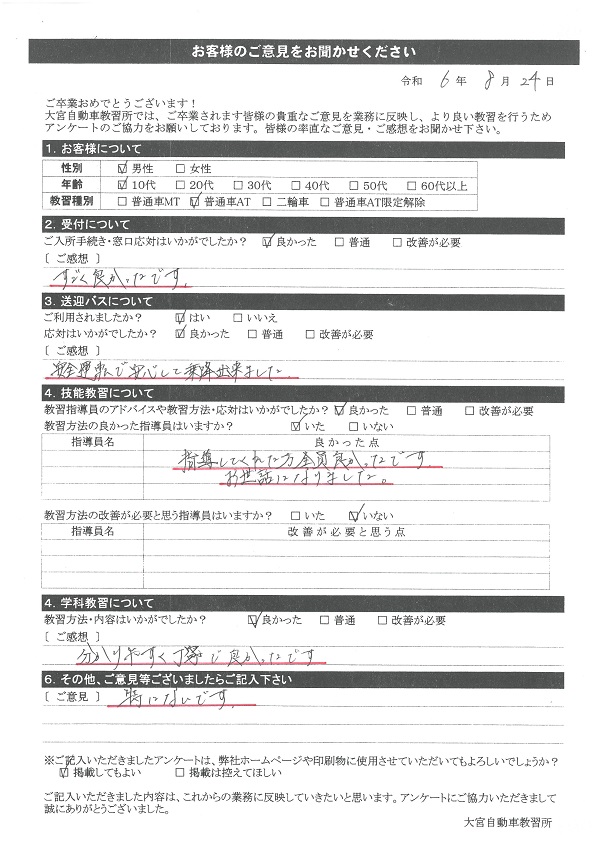 お客様のご意見をお聞かせください
令和 6 年 8 月 24 日
ご卒業おめでとうございます！
大宮自動車教習所では、ご卒業されます皆様の貴重なご意見を業務に反映し、より良い教習を行うため
アンケートのご協力をお願いしております。皆様の率直なご意見・ご感想をお聞かせ下さい。
1. お客様について
性別 ☑ 男性 □ 女性
年齢 ☑ 10代 □ 20代 □ 30代 □ 40代 □ 50代 □ 60代以上
教習種別 □ 普通車MT ☑ 普通車AT □ 二輪車 □ 普通車AT限定解除
2. 受付について
ご入所手続き・窓口応対はいかがでしたか？ ☑ 良かった □ 普通 □ 改善が必要
[ ご感想 ]
すごく良かったです。
3. 送迎バスについて
ご利用されましたか？ ☑ はい □ いいえ
応対はいかがでしたか？ ☑ 良かった □ 普通 □ 改善が必要
[ ご感想 ]
安全運転で安心して乗降出来ました。
4. 技能教習について
教習指導員のアドバイスや教習方法・応対はいかがでしたか？ ☑ 良かった □ 普通 □ 改善が必要
教習方法の良かった指導員はいますか？ ☑ いた □ いない
指導員名 良かった点
指導してくれた方全員良かったです。
お世話になりました。
教習方法の改善が必要と思う指導員はいますか？ □ いた ☑ いない
指導員名 改善が必要と思う点
4. 学科教習について
教習方法・内容はいかがでしたか？ ☑ 良かった □ 普通 □ 改善が必要
[ ご感想 ]
分かりやすく丁寧で良かったです
6. その他、ご意見等ございましたらご記入下さい
[ ご意見 ] 特にないです。
※ご記入いただきましたアンケートは、弊社ホームページや印刷物に使用させていただいてもよろしいでしょうか？
☑ 掲載してもよい □ 掲載は控えてほしい
ご記入いただきました内容は、これからの業務に反映していきたいと思います。アンケートにご協力いただきまして
誠にありがとうございました。
大宮自動車教習所